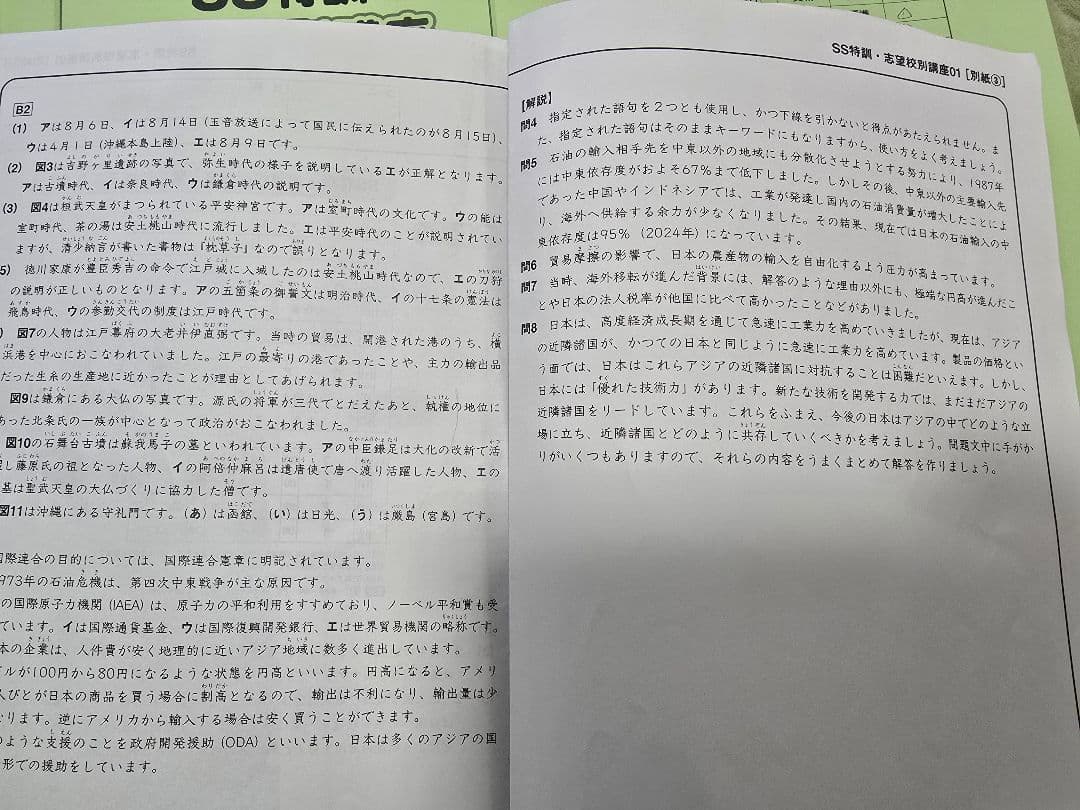 SS特訓
B2
(1) アは8月6日、イは8月14日(玉音放送によって国民に伝えられたのが8月15日)、
ウは4月1日(沖縄本島上陸)、エは8月9日です。
(2) 図3は吉野ヶ里遺跡の写真で、弥生時代の様子を説明しているエが正解となります。
アは古墳時代、イは奈良時代、ウは鎌倉時代の説明です。
(3) 図4は桓武天皇がまつられている平安神宮です。アは室町時代の文化です。ウの能は
室町時代、茶の湯は安土桃山時代に流行しました。エは平安時代のことが説明されてい
ますが、清少納言が書いた書物は『枕草子』なので誤りとなります。
5) 徳川家康が豊臣秀吉の命令で江戸城に入城したのは安土桃山時代なので、エの刀狩
の説明が正しいものとなります。アの五箇条の御誓文は明治時代、イの十七条の憲法は
飛鳥時代、ウの参勤交代の制度は江戸時代です。
) 図7の人物は江戸幕府の大老井伊直弼です。当時の貿易は、開港された港のうち、横
浜港を中心におこなわれていました。江戸の最寄りの港であったことや、主力の輸出品
だった生糸の生産地に近かったことが理由としてあげられます。
図9は鎌倉にある大仏の写真です。源氏の将軍が三代でとだえたあと、執権の地位に
あった北条氏の一族が中心となって政治がおこなわれました。
図10の石舞台古墳は蘇我馬子の墓といわれています。アの中臣鎌足は大化の改新で活
し藤原氏の祖となった人物、イの阿倍仲麻呂は遣唐使で唐へ渡り活躍した人物、エの
基は聖武天皇の大仏づくりに協力した僧です。
図11は沖縄にある守礼門です。(あ)は函館、(い)は日光、(う)は厳島(宮島)です。
国際連合の目的については、国際連合憲章に明記されています。
973年の石油危機は、第四次中東戦争が主な原因です。
の国際原子力機関(IAEA)は、原子力の平和利用をすすめており、ノーベル平和賞も受
ています。イは国際通貨基金、ウは国際復興開発銀行、エは世界貿易機関の略称です。
本の企業は、人件費が安く地理的に近いアジア地域に数多く進出しています。
ルが100円から80円になるような状態を円高といいます。円高になると、アメリ
人びとが日本の商品を買う場合に割高となるので、輸出は不利になり、輸出量は少
なります。逆にアメリカから輸入する場合は安く買うことができます。
のような支援のことを政府開発援助(ODA)といいます。日本は多くのアジアの国
形での援助をしています。
SS特訓・志望校別講座01[別紙③]
【解説】
問4 指定された語句を2つとも使用し、かつ下線を引かないと得点があたえられません。ま
た、指定された語句はそのままキーワードにもなりますから、使い方をよく考えましょう。
問5 石油の輸入相手先を中東以外の地域にも分散化させようとする努力により、1987年
には中東依存度がおよそ67%まで低下しました。しかしその後、中東以外の主要輸入先
であった中国やインドネシアでは、工業が発達し国内の石油消費量が増大したことによ
り、海外へ供給する余力が少なくなりました。その結果、現在では日本の石油輸入の中
東依存度は95%(2024年)になっています。
問6 貿易摩擦の影響で、日本の農産物の輸入を自由化するよう圧力が高まっています。
問7 当時、海外移転が進んだ背景には、解答のような理由以外にも、極端な円高が進んだこ
とや日本の法人税率が他国に比べて高かったことなどがありました。
問8 日本は、高度経済成長期を通じて急速に工業力を高めていきましたが、現在は、アジア
の近隣諸国が、かつての日本と同じように急速に工業力を高めています。製品の価格とい
う面では、日本はこれらアジアの近隣諸国に対抗することは困難だといえます。しかし、
日本には「優れた技術力」があります。新たな技術を開発する力では、まだまだアジアの
近隣諸国をリードしています。これらをふまえ、今後の日本はアジアの中でどのような立
場に立ち、近隣諸国とどのように共存していくべきかを考えましょう。問題文中に手がか
りがいくつもありますので、それらの内容をうまくまとめて解答を作りましょう。